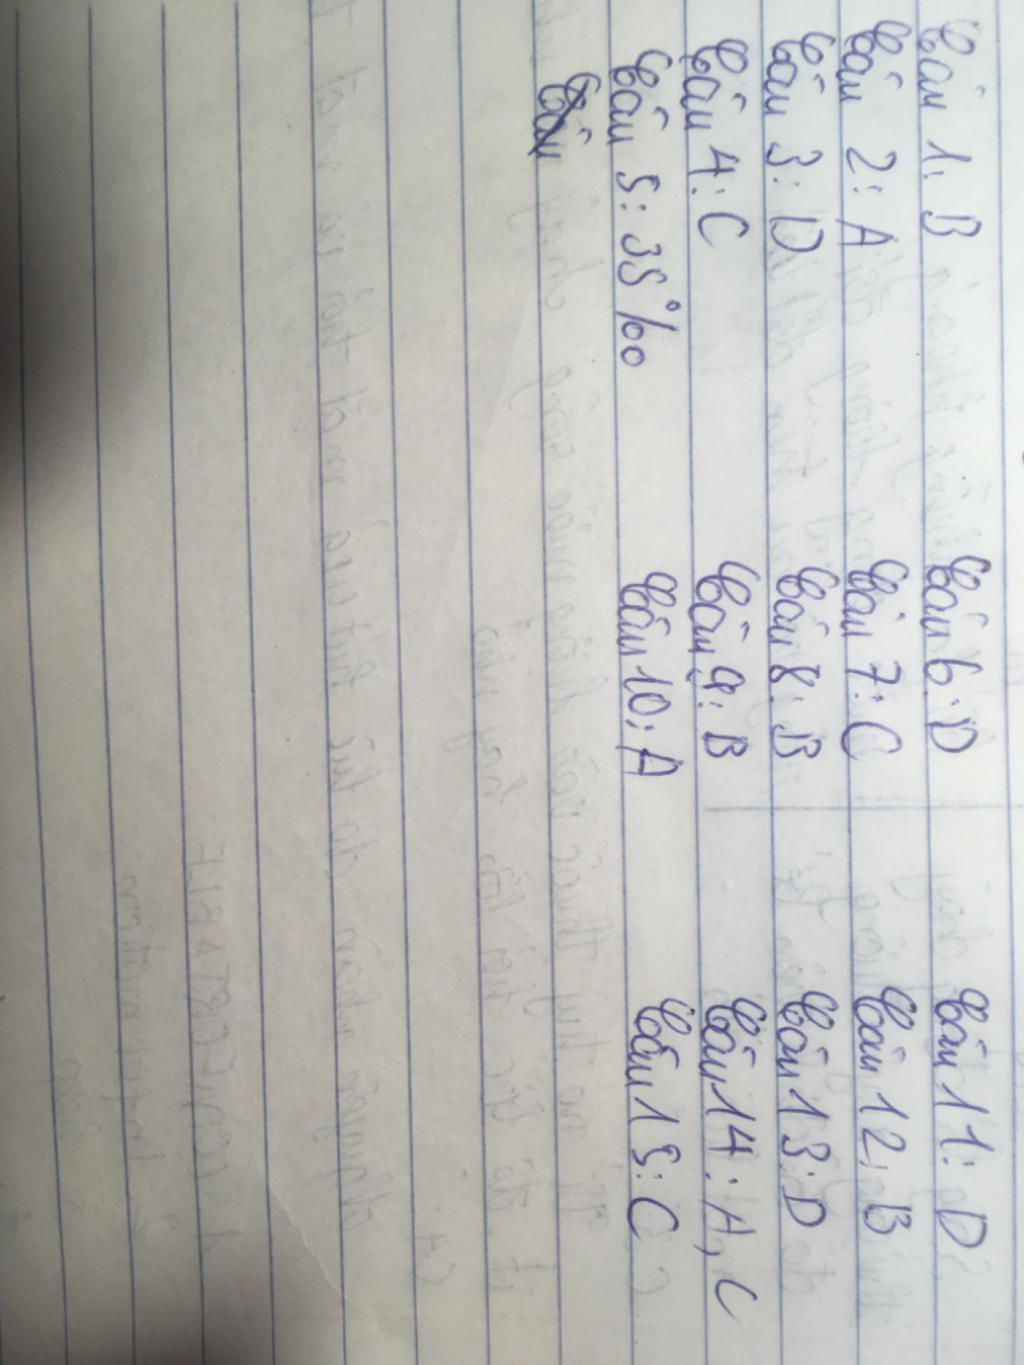 Câu 1: B
Câu 2: A
Câu 3: D
Câu 4: C
Câu 5: 35%o
Câu
Câu 6: D
Câu 7: C
Câu 8: B
Câu 9: B
Câu 10: A
Câu 11: D
Câu 12: B
Câu 13: D
Câu 14: A, C
Câu 15: C